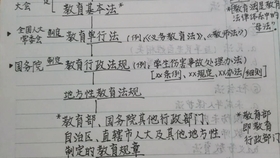 大会 教育基本法* *教育调是教育
法律体系中的
"母法"
全国人大 制定 教育单行法 (例:《义务教育法》、《教师法》)
常委会
国务院 制定 教育行政法规 (例:学生伤害事故处理办法)
[xx条例、xx规定、xx办法/细则]
地方性教育法规
*教育部、国务院其他行政部门、
自治区、直辖市人大及其他地方性
制定的教育规章
*教育部
即教育
行政部门